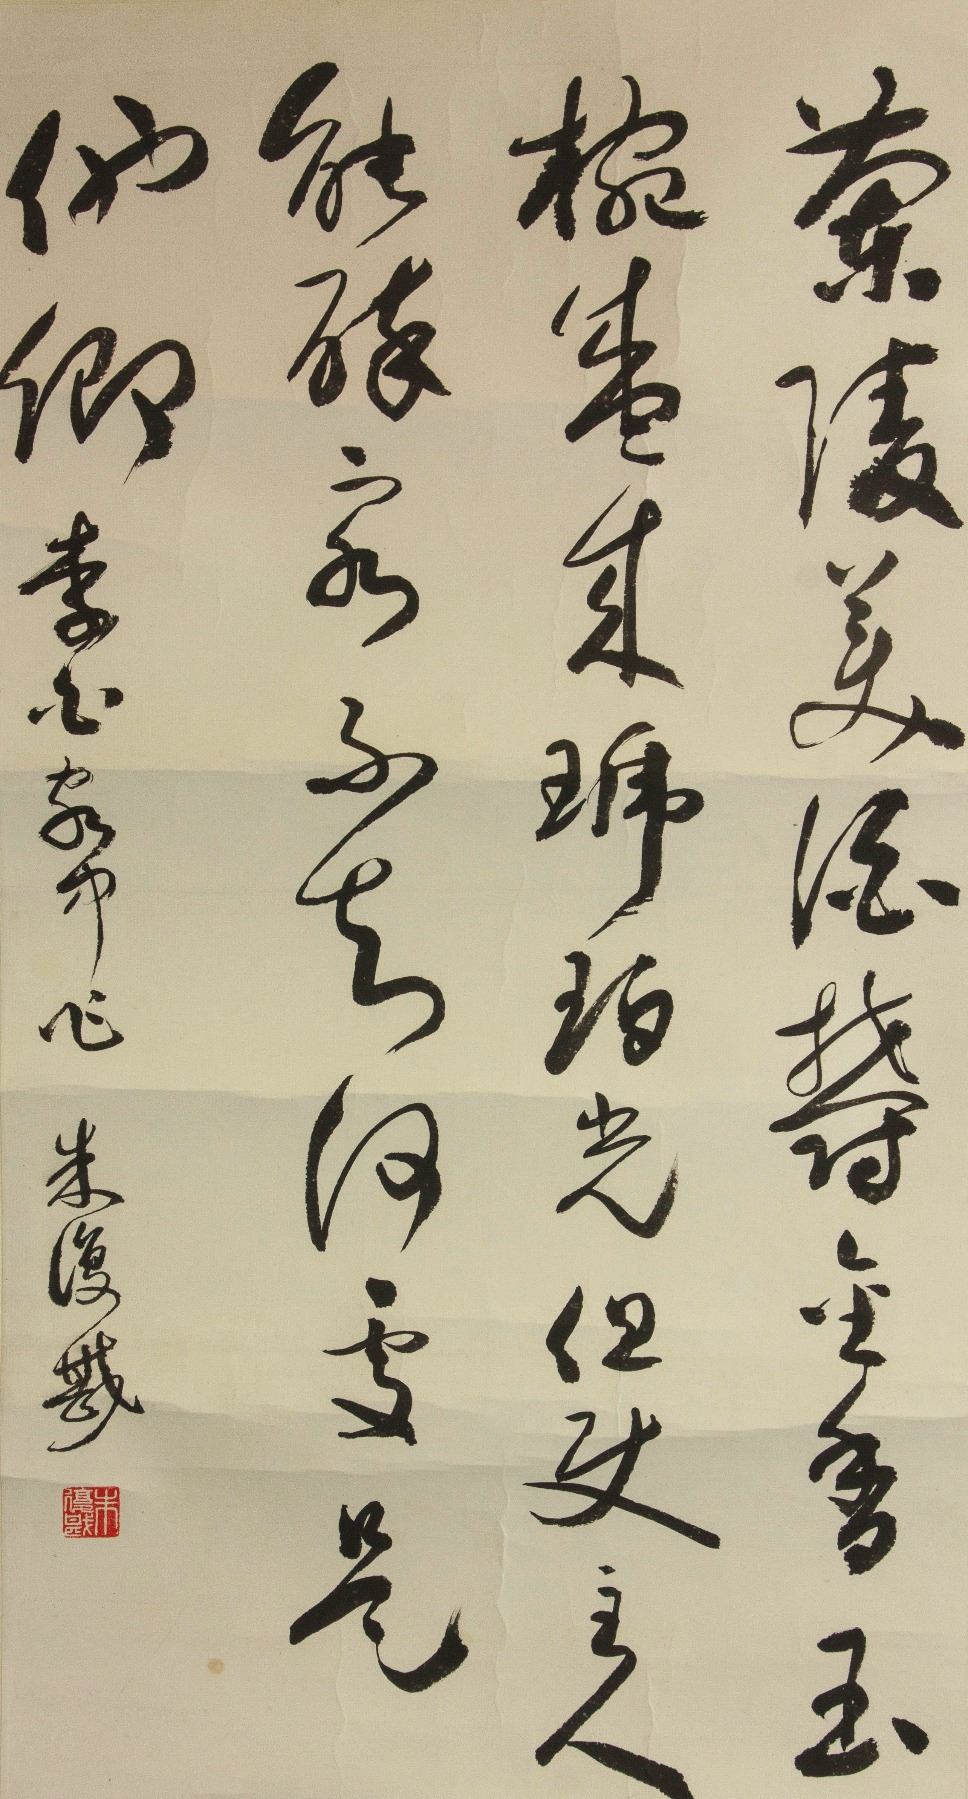 蘭陵美酒鬱金香玉
椀盛來琥珀光但使主人
能醉客不知何處是
他鄉 李白客中作 朱復戡
朱復戡